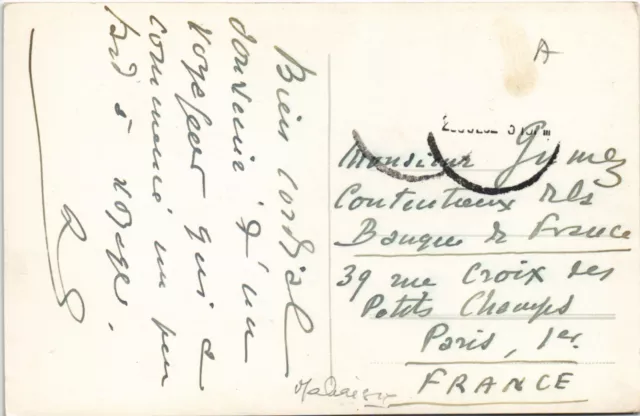 Bien cordial
souvenir d'un
voyageur qui a
commencé un peu
tard à voyager.
A
Monsieur Gumez
Contentieux
Banque de France
39 rue Croix des
Petits Champs
Paris, 1er.
FRANCE